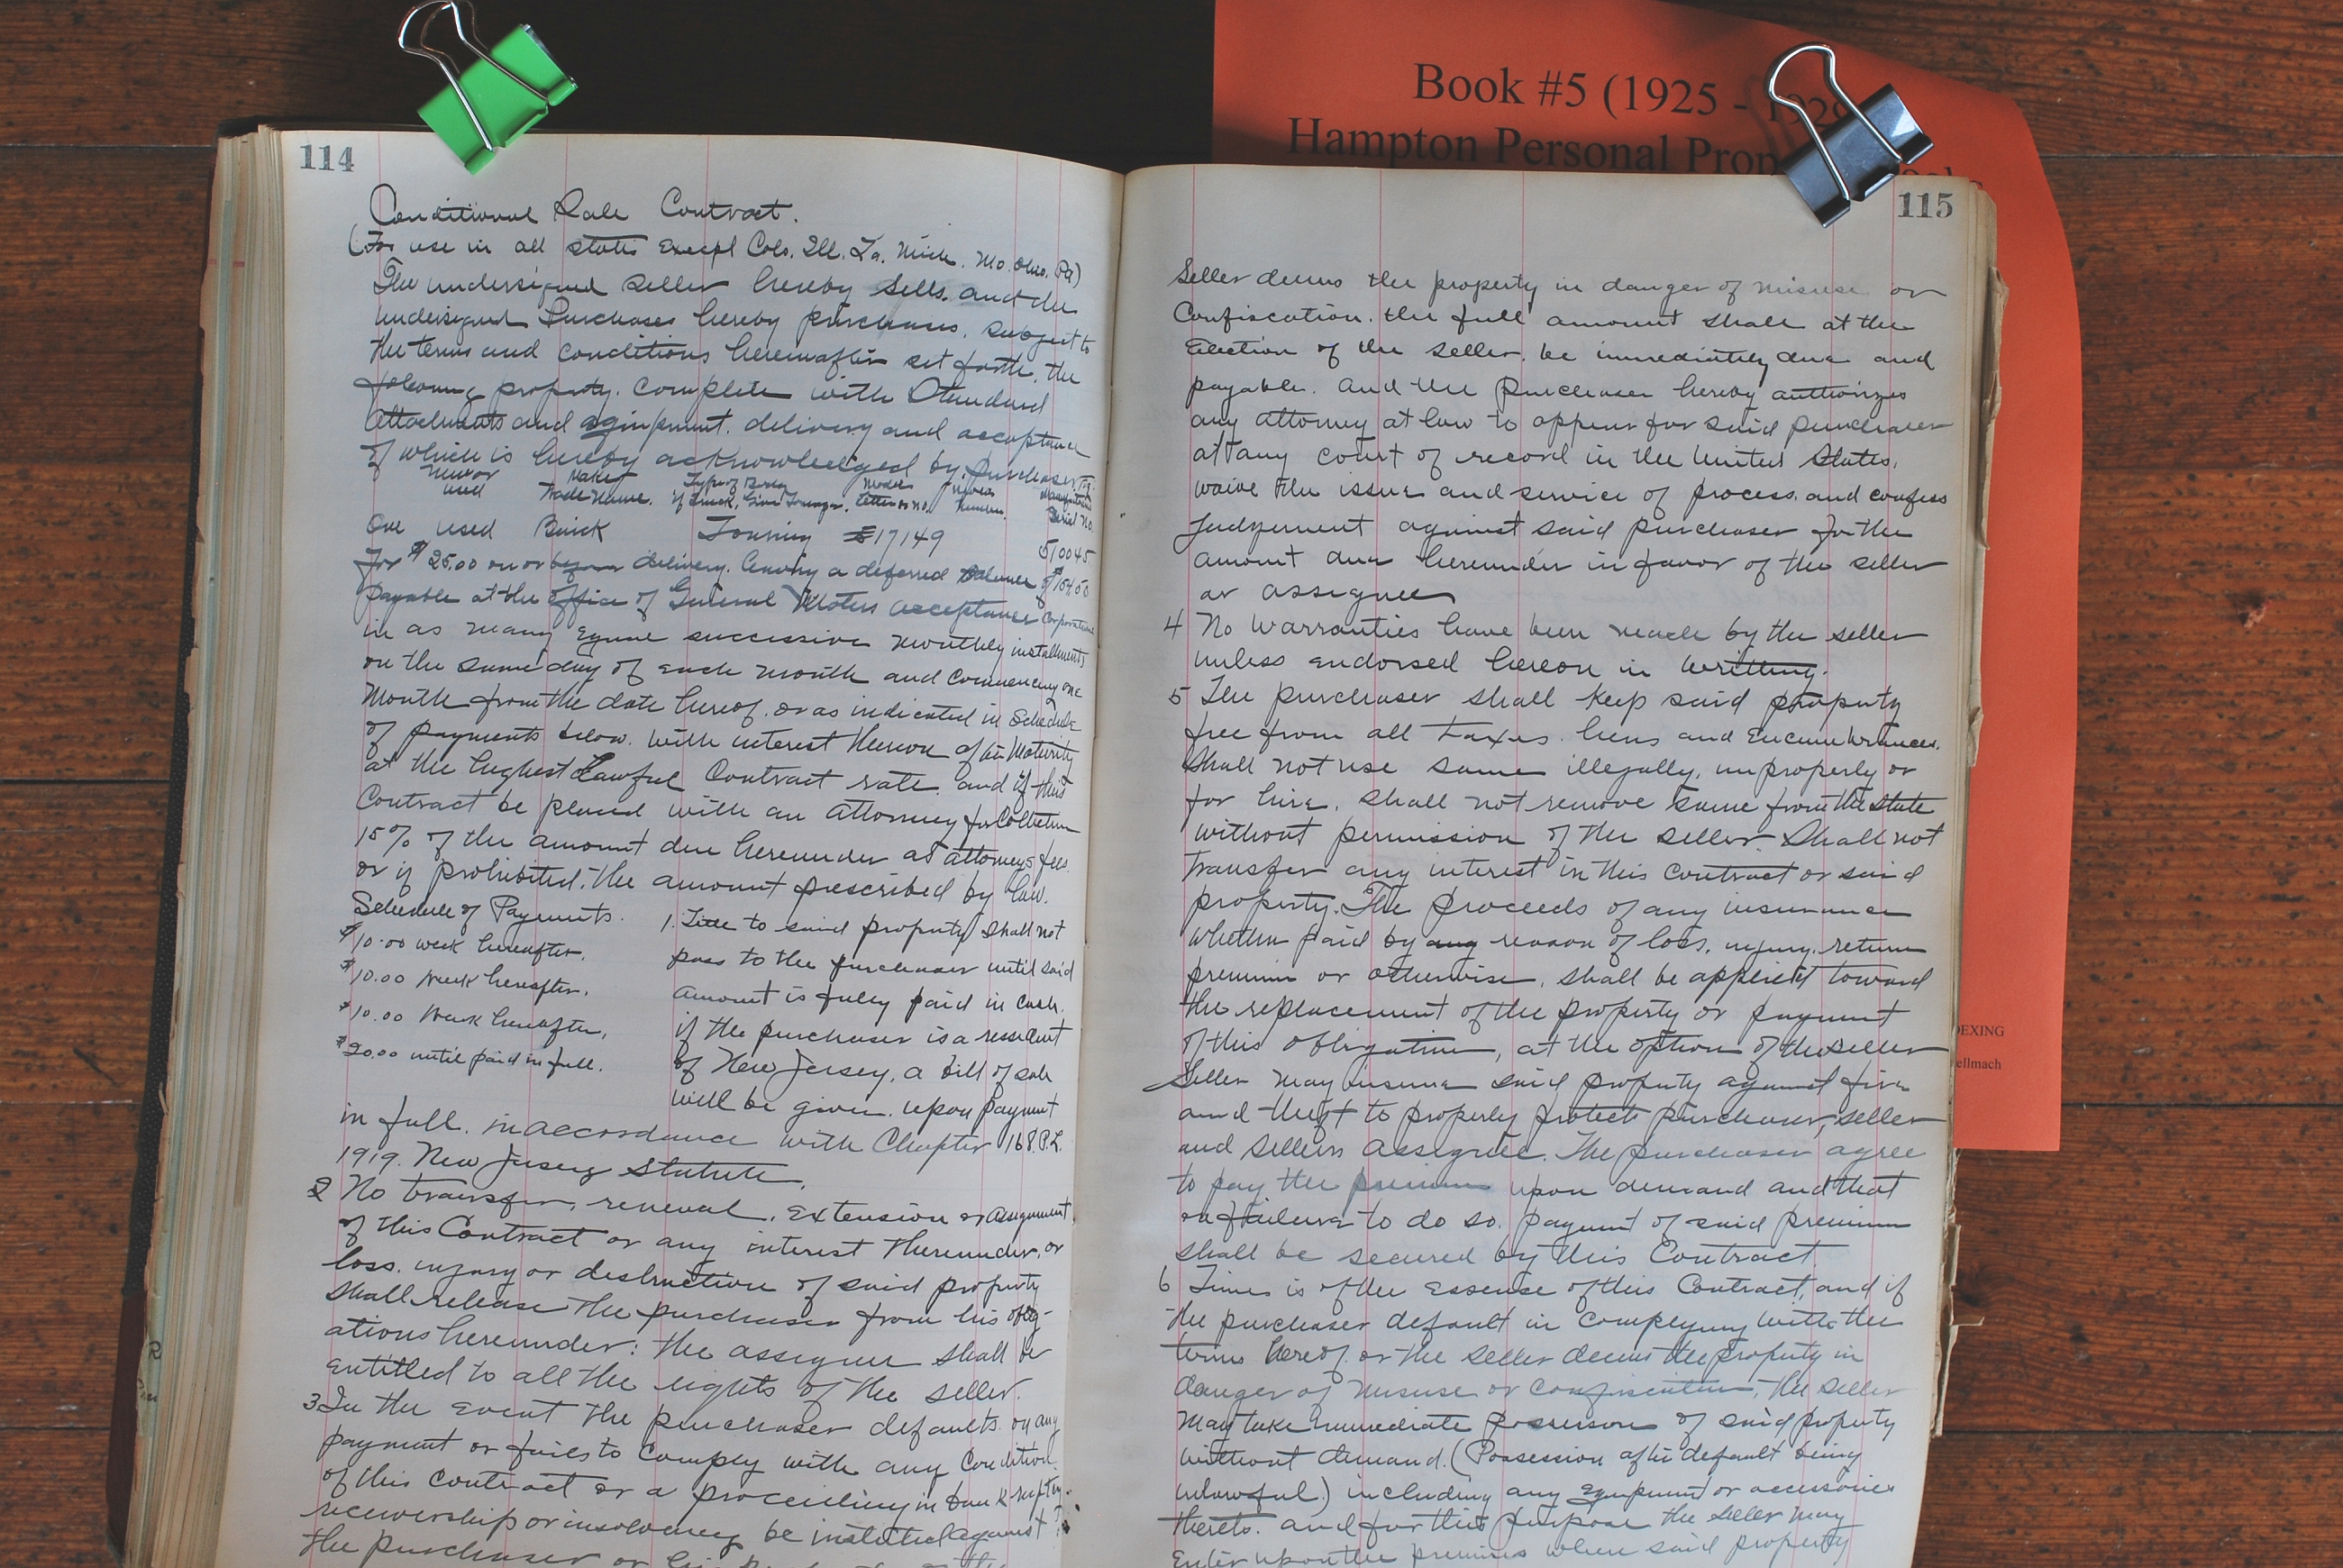 Book #5 (1925 - 1928
Hampton Personal Prop
114
Conditional Sale Contract.
(For use in all states except Colo. Ill. Ia. Mich. Mo. Ohio. Pa)
The undersigned seller hereby sells, and the
undersigned Purchaser hereby purchases, subject to
the terms and conditions hereinafter set forth, the
following property, complete with Standard
Attachments and equipment, delivery and acceptance
of which is hereby acknowledged by purchaser,
New or used
Make Trade Name.
Type of Body if Truck, Give Tonnage.
Model Letter or No.
Motor Number.
Manufacturers Serial No.
One used Buick Touring 17149 510045
For $25.00 on or before delivery. leaving a deferred Balance of $154.50
Payable at the office of General Motors Acceptance Corporation
in as many equal successive monthly installments
on the same day of each month and commencing one
month from the date hereof, or as indicated in Schedule
of payments below, with interest thereon after maturity
at the highest Lawful Contract rate, and if this
Contract be placed with an Attorney for Collection
15% of the amount due hereunder as attorneys fees
or if prohibited, the amount prescribed by law.
Schedule of Payments.
$10.00 week hereafter.
$10.00 Week hereafter.
$10.00 Week hereafter,
$20.00 until paid in full.
1. Title to said property shall not
pass to the purchaser until said
amount is fully paid in cash,
if the purchaser is a resident
of New Jersey, a bill of sale
will be given, upon payment
in full, in accordance with Chapter 168 P.L.
1919. New Jersey Statute.
2 No transfer, renewal, extension or assignment
of this Contract or any interest thereunder, or
loss, injury or destruction of said property
shall release the purchaser from his oblig-
ations hereunder: the assignee shall be
entitled to all the rights of the seller.
3 In the event the purchaser defaults on any
payment or fails to comply with any Condition
of this contract or a proceeding in bankruptcy,
receivership or insolvency be instituted against
the purchaser or his
115
Seller deems the property in danger of misuse or
Confiscation, the full amount shall at the
Election of the seller, be immediately due and
payable. And the Purchaser hereby authorizes
any attorney at law to appear for said purchaser
at any court of record in the United States,
waive the issue and service of process, and confess
Judgement against said purchaser for the
amount due hereunder in favor of the seller
or assignee
4 No Warranties have been made by the seller
unless endorsed hereon in writting.
5 The purchaser shall keep said property
free from all taxes, liens and encumbrances.
Shall not use same illegally, improperly or
for hire, shall not remove same from the state
without permission of the seller. Shall not
transfer any interest in this contract or said
property. The proceeds of any insurance
whether paid by any reason of loss, injury, return
premium or otherwise, shall be applied toward
the replacement of the property or payment
of this obligation, at the option of the seller
Seller may insure said property against fire
and theft to properly protect purchaser, seller
and sellers assignee. The purchaser agree
to pay the premium upon demand and that
on failure to do so, payment of said premium
shall be secured by this Contract.
6 Time is of the essence of this Contract, and if
the purchaser default in complying with the
terms hereof, or the seller deems the property in
danger of misuse or confiscation, the seller
may take immediate possession of said property
without demand. (Possession after default being
unlawful) including any equipment or accessories
thereto, and for this purpose the seller may
Enter upon the premises when said property
DEXING
ellmach